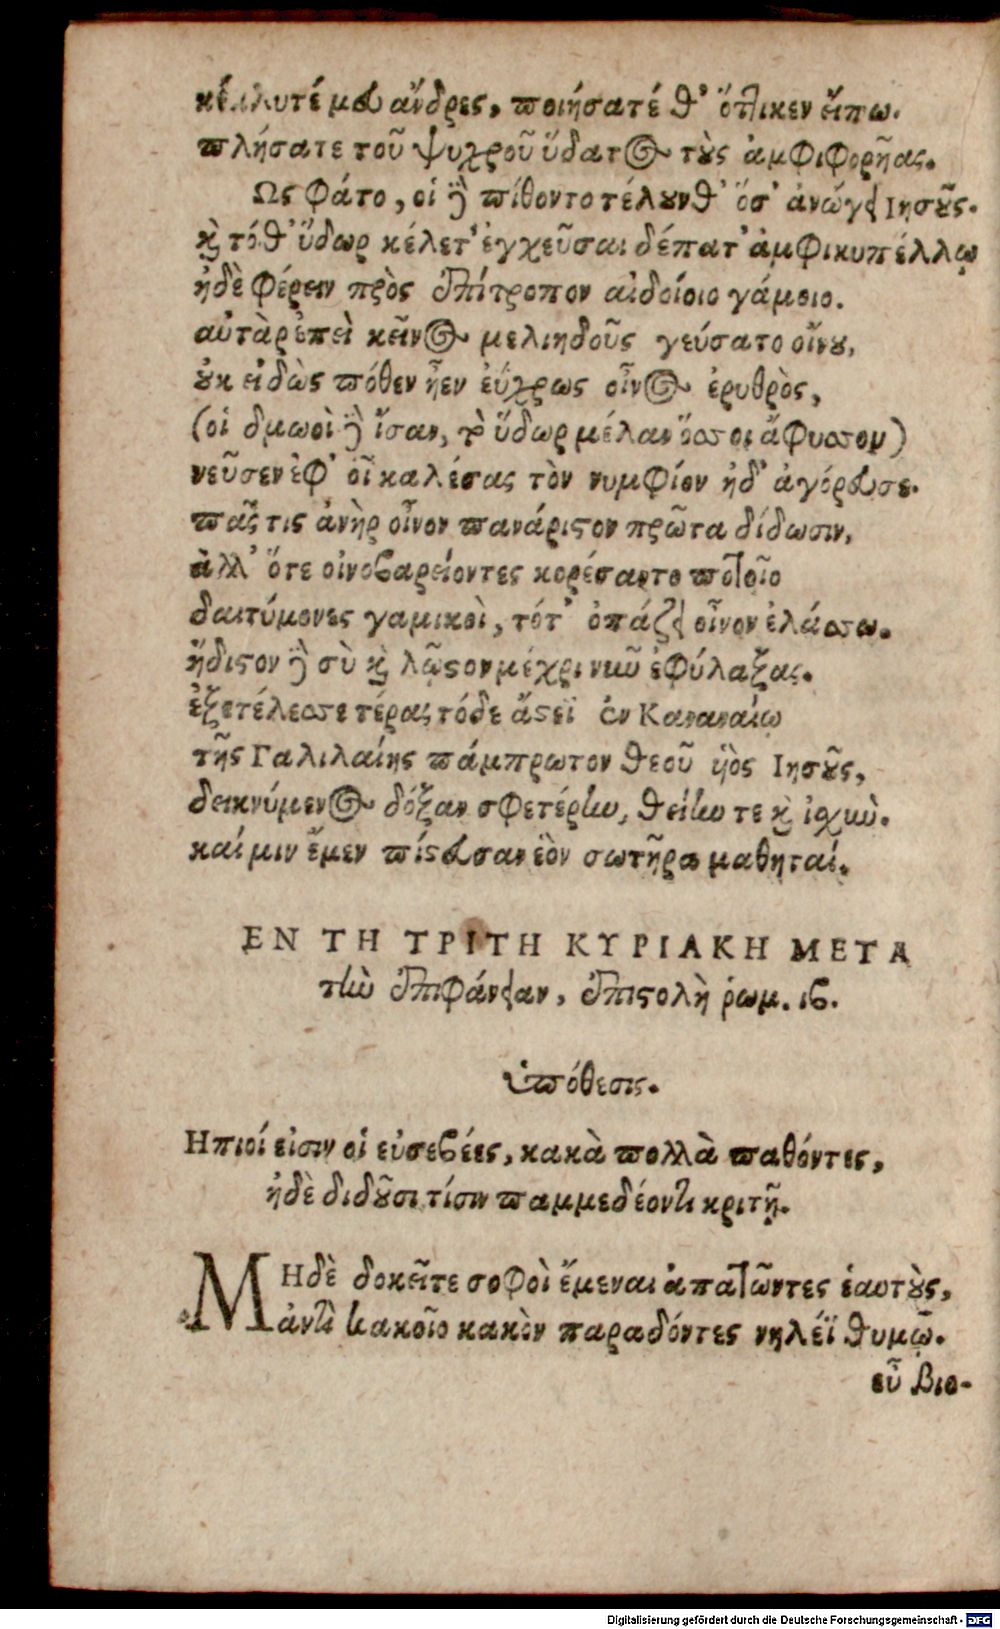 κέκλυτέ μευ ἄνδρες, ποιήσατέ θ' ὅττικεν εἴπω.
πλήσατε τοῦ ψυχροῦ ὕδατος τοὺς ἀμφιφορῆας.
Ως φάτο, οἱ δὲ πίθοντο τέλουνθ' ὅσ' ἀνώγει Ιησοῦς.
καὶ τόθ' ὕδωρ κέλετ' ἐγχεῦσαι δέπατ' ἀμφικυπέλλῳ
ἠδὲ φέρειν πρὸς ἐπίτροπον αἰδοίοιο γάμοιο.
αὐτὰρ ἐπεὶ κεῖνος μελιηδοῦς γεύσατο οἴνου,
οὐκ εἰδὼς πόθεν ἦεν ἐύχρως οἶνος ἐρυθρὸς,
(οἱ δμωοὶ δὲ ἴσαν, τὸ ὕδωρ μέλαν ὅσσοι ἄφυσσον)
νεῦσεν ἐφ' οἷ καλέσας τὸν νυμφίον ἠδ' ἀγόρευσε.
πᾶς τις ἀνὴρ οἶνον πανάριστον πρῶτα δίδωσιν,
ἀλλ' ὅτε οἰνοβαρείοντες κορέσαντο ποτοῖο
δαιτύμονες γαμικοὶ, τότ' ὀπάζει οἶνον ἐλάσσω.
ἥδιστον δὲ σὺ καὶ λῷστον μέχρι νιῦ ἐφύλαξας.
ἐξετέλεσσε τέρας τόδε ἄστεϊ ἐν Καναναίῳ
τῆς Γαλιλαίης πάμπρωτον θεοῦ ὑὸς Ιησοῦς,
δεικνύμενος δόξαν σφετέρην, θείην τε καὶ ἰσχὺν.
καί μιν ἔμεν πίστευσαν ἑὸν σωτῆρα μαθηταί.
ΕΝ ΤΗ ΤΡΙΤΗ ΚΥΡΙΑΚΗ ΜΕΤΑ
τὴν ἐπιφάνειαν, ἐπιστολὴ ῥωμ. ιβ.
ὑπόθεσις.
Ηπιοί εἰσιν οἱ εὐσεβέες, κακὰ πολλὰ παθόντες,
ἠδὲ διδοῦσι τίσιν παμμεδέοντι κριτῇ.
ΜΗδὲ δοκεῖτε σοφοὶ ἔμεναι ἀπατῶντες ἑαυτοὺς,
ἀντὶ κακοῖο κακὸν παραδόντες νηλέϊ θυμῷ.
εὖ βιο-
Digitalisierung gefördert durch die Deutsche Forschungsgemeinschaft - DFG